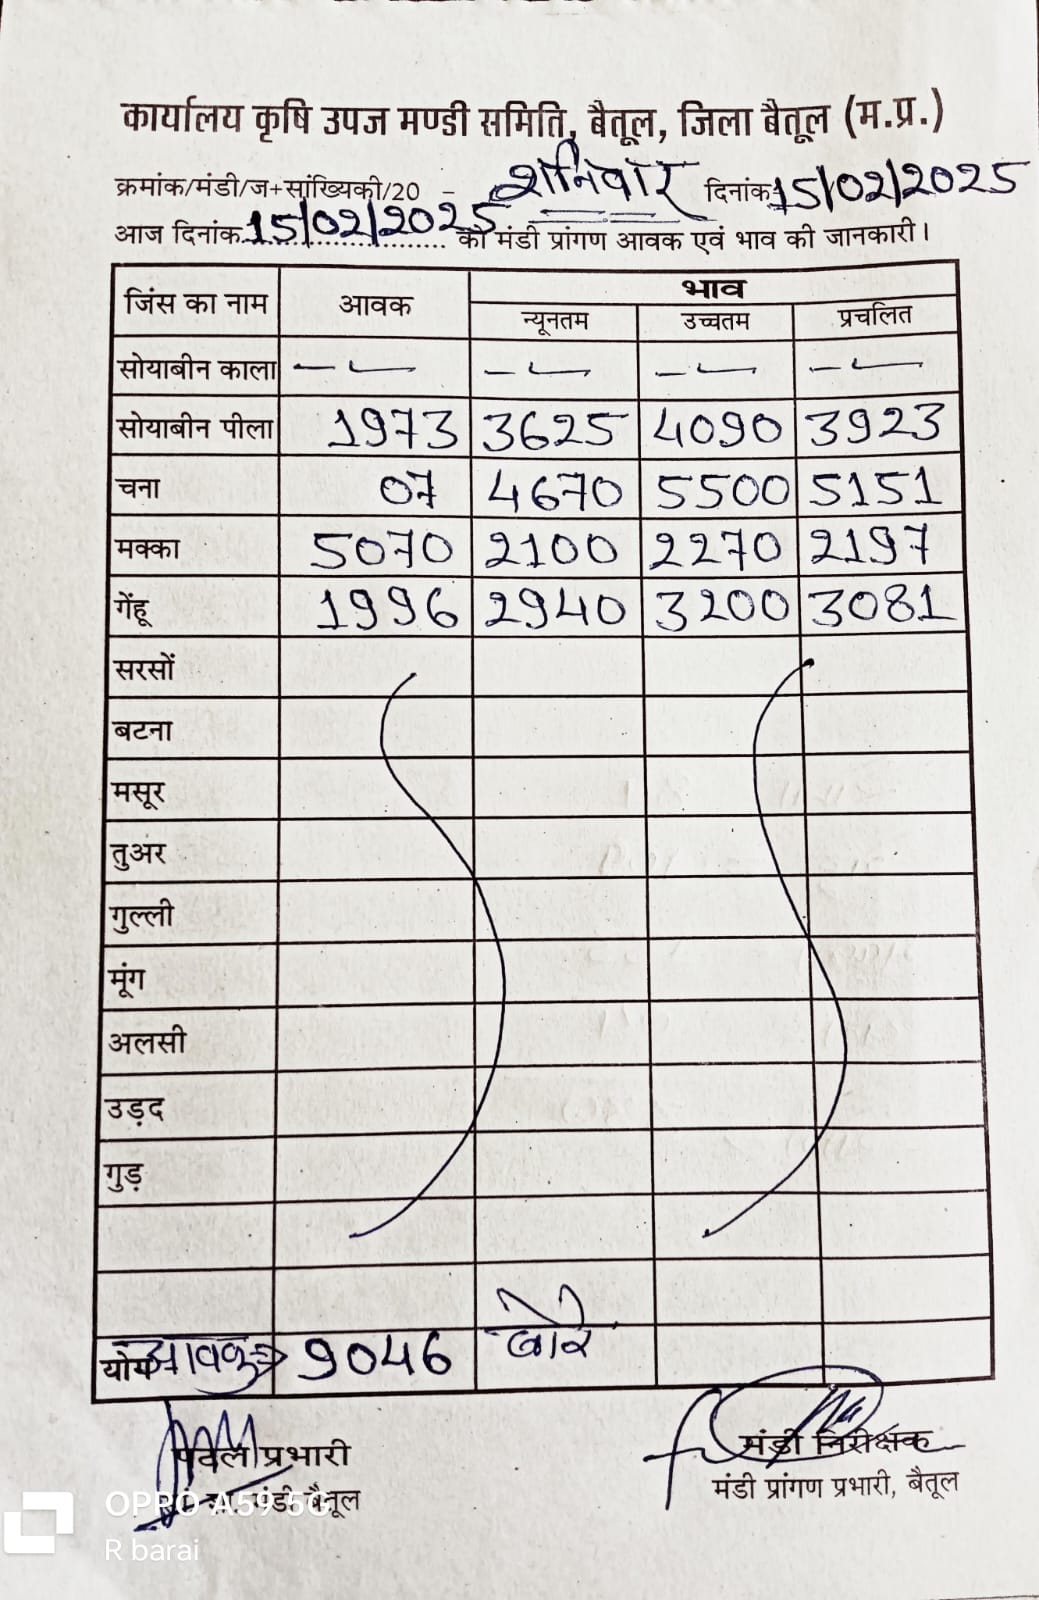 कार्यालय कृषि उपज मण्डी समिति, बैतूल, जिला बैतूल (म.प्र.)
क्रमांक/मंडी/ज+सांख्यिकी/20 - शनिवार दिनांक 15/02/2025
आज दिनांक 15/02/2025 को मंडी प्रांगण आवक एवं भाव की जानकारी।
जिंस का नाम आवक भाव
न्यूनतम उच्चतम प्रचलित
सोयाबीन काला — — — —
सोयाबीन पीला 1973 3625 4090 3923
चना 07 4670 5500 5151
मक्का 5070 2100 2270 2197
गेंहू 1996 2940 3200 3081
सरसों
बटना
मसूर
तुअर
गुल्ली
मूंग
अलसी
उड़द
गुड़
योग आवक 9046 बोरे
प्रभारी मंडी निरीक्षक
मंडी बैतूल मंडी प्रांगण प्रभारी, बैतूल
OPPO A59 5G
R barai